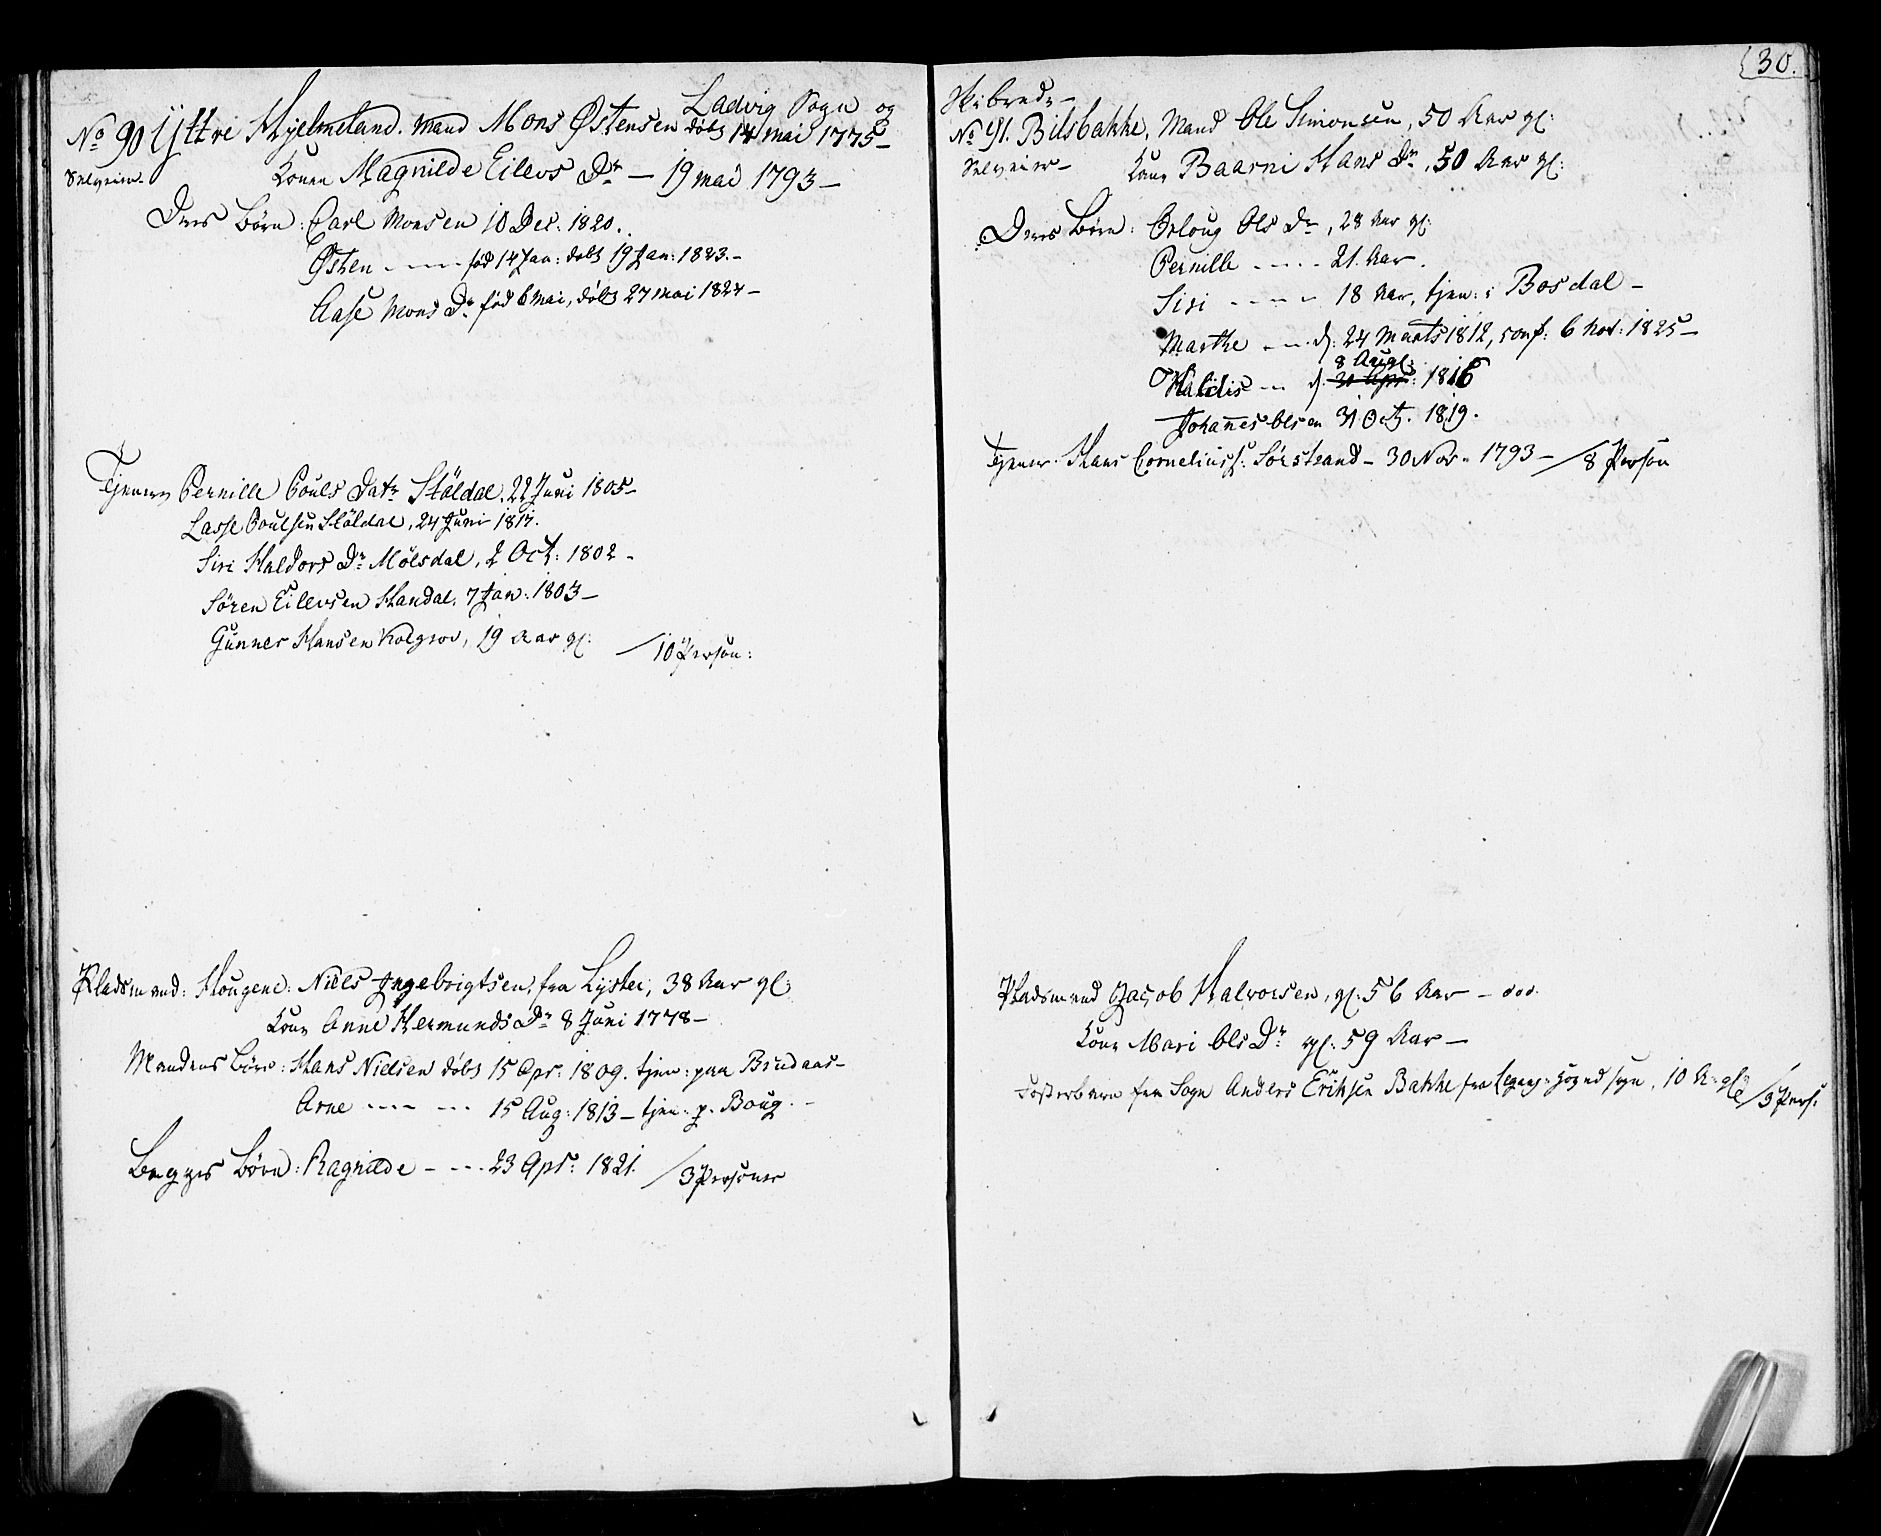 Ladvig Sogn og
No 90 Yttre Hjelmeland. Mand Mons Østensen døbt 14 mai 1775 –
Selveier. Konen Magnilde Eilevs Dr – 19 mai 1793 –
Deres Børn: Carl Monsen 10 Dec: 1820.
Østen - - - - født 14 Jan: døbt 19 Jan: 1823. –
Aase Mons Dr født 6 mai, døbt 27 mai 1827 –
Tjenere Pernille Pouls Datr Stöldal. 22 Juni 1805 –
Lasse Poulsen Stöldal, 24 Juni 1817.
Siri Haldors Dr Mölsdal, 2 Oct: 1802 –
Sören Eilevsen Handal. 7 Jan: 1803 –
Gunner Hansen Kolgrov, 19 Aar gl: / 10 Person:
Pladsmand: Hougene: Niels Ingebrigtsen, fra Lyster, 38 Aar gl:
Kone Anne Hermunds Dr 8 Juni 1778 –
Mandens Børn: Hans Nielsen døbt 15 Apr: 1809. tjen: paa Brudaas –
Arne - - - - - - 15 Aug: 1813 – tjen: p. Boug. –
Begges Børn: Ragnilde - - - - 23 Apr: 1821. / 3 Personer
30.
Skibrede –
No 91. Bilsbakke, Mand Ole Simonsen, 50 Aar gl:
Selveier – Kone Baarni Hans Dr, 50 Aar gl:
Deres Børn: Orloug Ols Dr, 28 Aar gl:
Pernille - - - - 21. Aar.
Siri - - - - 18 Aar, tjen: i Bosdal –
Marthe - - - d: 24 Marts 1812, conf: 6 Nov: 1825 –
8 Aug:
Haldis - - - d: 30 Apr: 1816
Johannes Olsen 31 Oct. 1819.
Tjener. Hans Cornelius S: Sørstrand – 30 Nov. 1793 – / 8 Person
Pladsmand Jacob Halvorsen, gl: 56 Aar –
Kone Mari Ols Dr gl: 59 Aar –
Fosterbarn fra Sogn Anders Eriksen Bakke fra sogn, 10 A: gl: / 3 Pers: